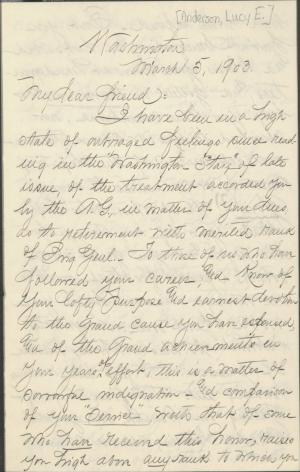 [Anderson, Lucy E.]
Washington
March 5, 1903.
My dear friend:
I have been in a high
state of outraged feelings since read
ing in the "Washington Star" of late
issue of the treatment accorded you
by the A.G. in matter of your dues
as to retirement with merited rank
of Brig Genl. - To those of us who have
followed your career, &d know of
your lofty purpose &d earnest devotion
to the grand cause you have espoused,
&d of the grand achievements in
your years of effort, this is a matter of
sorrowful indignation - &d comparison
of your "service" with that of some
who have received this honor, raises
you high above any rank to which you